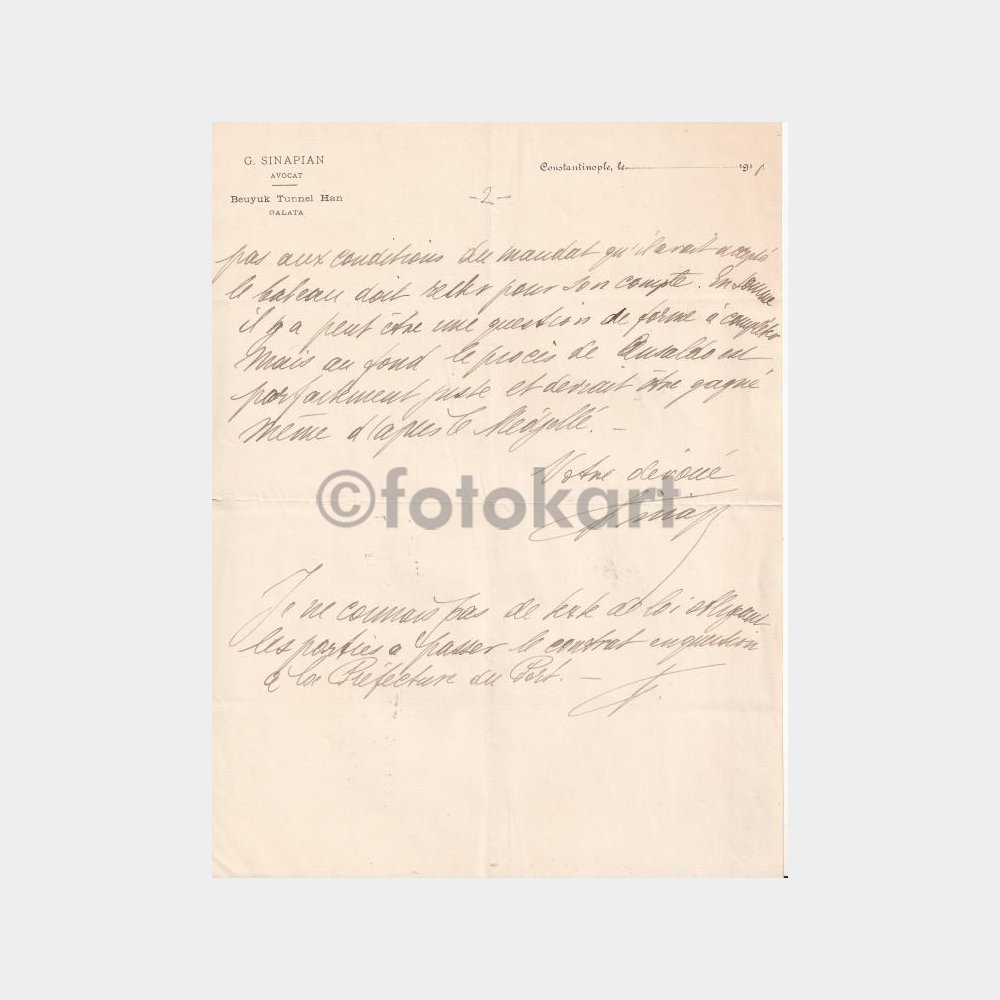 G. SINAPIAN
AVOCAT
Beuyuk Tunnel Han
GALATA
Constantinople, le 191
-2-
pas aux conditions du mandat qu'il avait accepté
le bateau doit rester pour son compte. En somme
il y a peut être une question de forme à compléter
Mais au fond le procès de Ansaldo est
parfaitement juste et devrait être gagné
même d'après le Méjellé. -
Votre dévoué
©fotokart
Je ne connais pas de texte de loi obligeant
les parties à passer le contrat en question
à la Préfecture du Port. -